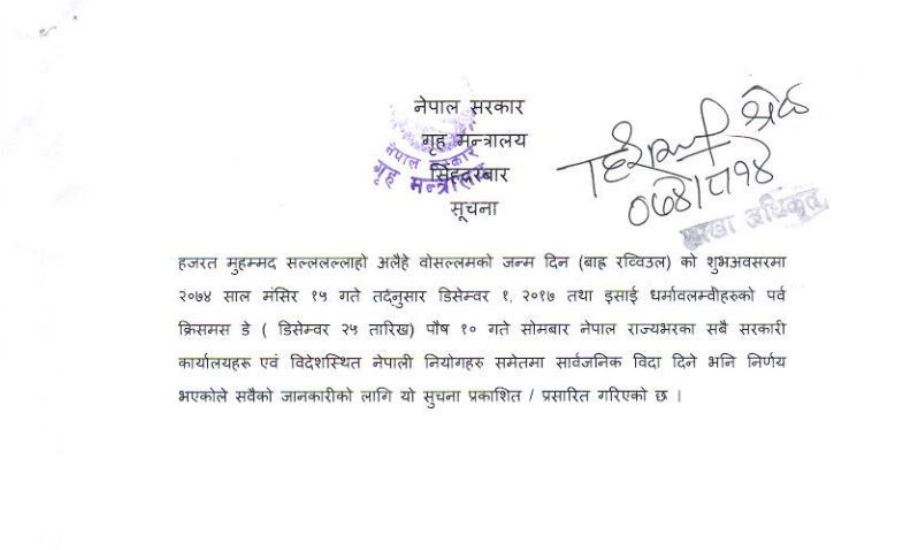 नेपाल सरकार
गृह मन्त्रालय
सिंहदरबार
सूचना
नेपाल सरकार
गृह मन्त्रालय
शाखा अधिकृत
हजरत मुहम्मद सल्ललल्लाहो अलैहे वोसल्लमको जन्म दिन (बाह्र रव्विउल) को शुभअवसरमा
२०७४ साल मंसिर १५ गते तदनुसार डिसेम्वर १, २०१७ तथा इसाई धर्मावलम्वीहरुको पर्व
क्रिसमस डे ( डिसेम्वर २५ तारिख) पौष १० गते सोमबार नेपाल राज्यभरका सबै सरकारी
कार्यालयहरू एवं विदेशस्थित नेपाली नियोगहरु समेतमा सार्वजनिक विदा दिने भनि निर्णय
भएकोले सवैको जानकारीको लागि यो सुचना प्रकाशित / प्रसारित गरिएको छ ।